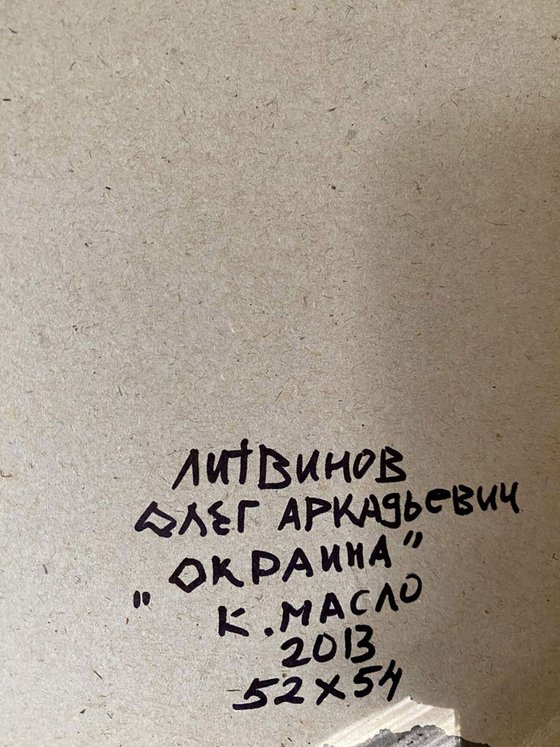 ЛИТВИНОВ
ОЛЕГ АРКАДЬЕВИЧ
"ОКРАИНА"
К. МАСЛО
2013
52х54